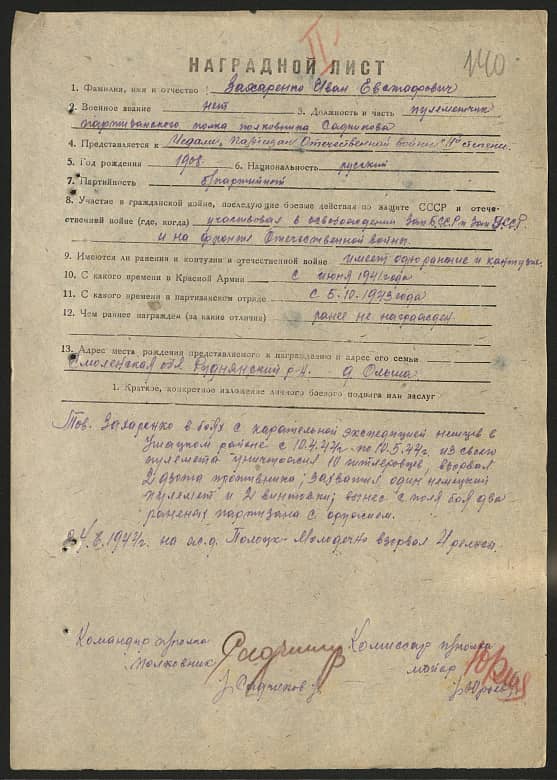 II
140
НАГРАДНОЙ ЛИСТ
1. Фамилия, имя и отчество: Захаренко Иван Евстафович
2. Военное звание нет 3. Должность и часть пулеметчик
партизанского полка полковника Садчикова
4. Представляется к Медали „Партизан Отечественной войны" степени.
5. Год рождения 1908 6. Национальность русский
7. Партийность б/партийный
8. Участие в гражданской войне, последующие боевые действия по защите СССР и отече-
ственной войне (где, когда) участвовал в освобождении Зап БССР и Зап УССР
и на фронте Отечественной войны.
9. Имеются ли ранения и контузии в отечественной войне имеет одно ранение и контузию.
10. С какого времени в Красной Армии с июня 1941 года
11. С какого времени в партизанском отряде с 5.10.1943 года
12. Чем раннее награжден (за какие отличия) ранее не награжден
13. Адрес места рождения представляемого к награждению и адрес его семьи
Смоленская обл Руднянский р-н. д Ольша
1. Краткое, конкретное изложение личного боевого подвига или заслуг
Тов. Захаренко в боях с карательной экспедицией немцев в
Ушацком районе с 10.4.44г. по 10.5.44г. из своего
пулемета уничтожил 10 гитлеровцев, взорвал
2 дзота противника; захватил один немецкий
пулемет и 2 винтовки; вынес с поля боя два
раненых партизана с оружием.
1944г. на ж.д. Полоцк-Молодечно взорвал рельса.
Командир полка Комиссар полка
полковник майор
/Садчиков/ /Юрьев/